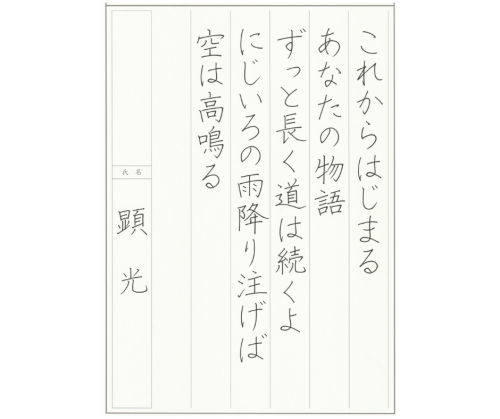 これからはじまる
あなたの物語
ずっと長く道は続くよ
にじいろの雨降り注げば
空は高鳴る
氏名
顕光